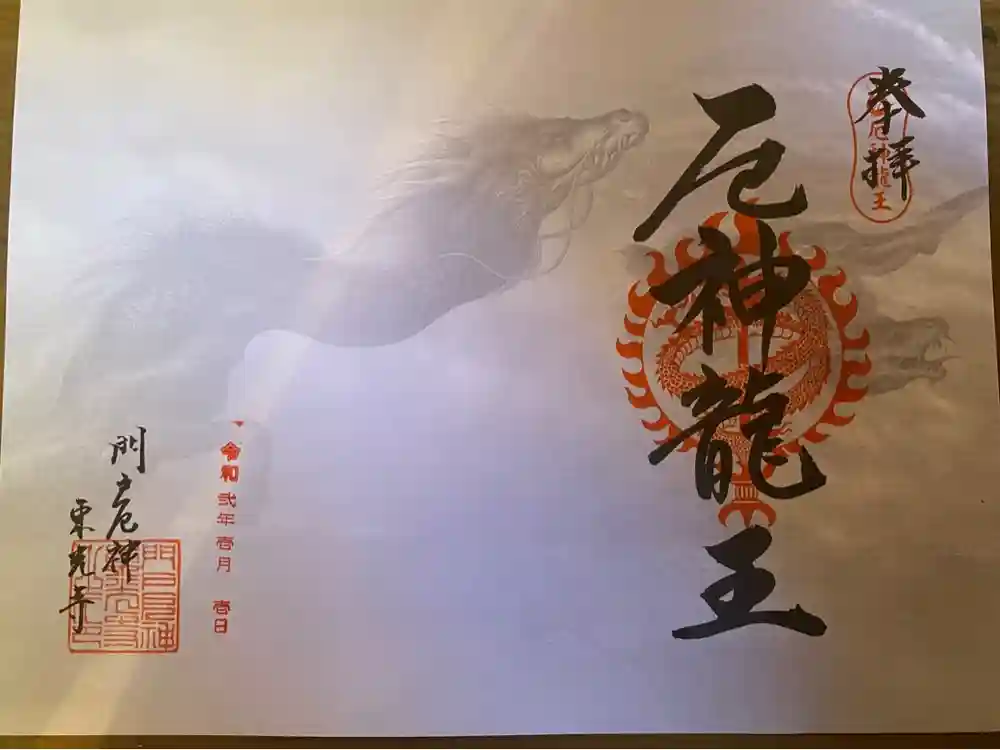 奉拝
厄神龍王
厄神龍王
令和弐年壱月 壱日
門厄神
東光寺